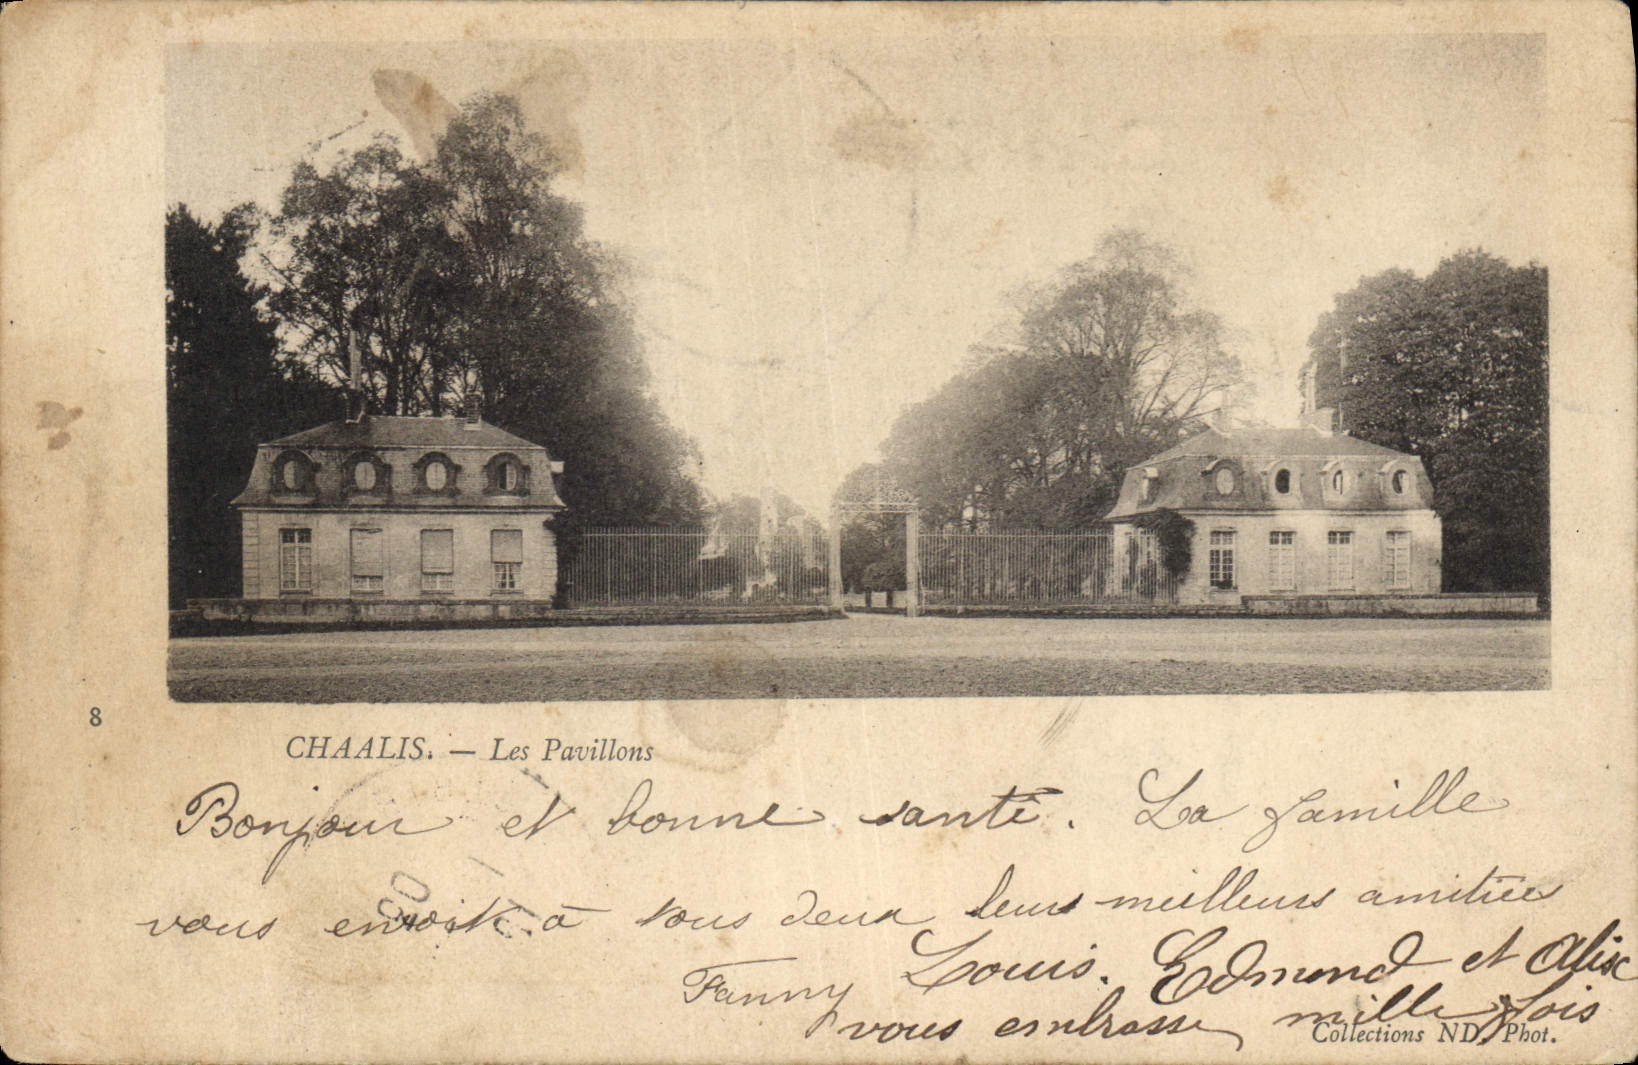 8
CHAALIS. — Les Pavillons
Bonjour et bonne santé. La famille
vous envoit à tous deux leurs meilleurs amitiées
Fanny Louis. Edmond et Alise
vous embrasse mille fois
Collections ND. Phot.